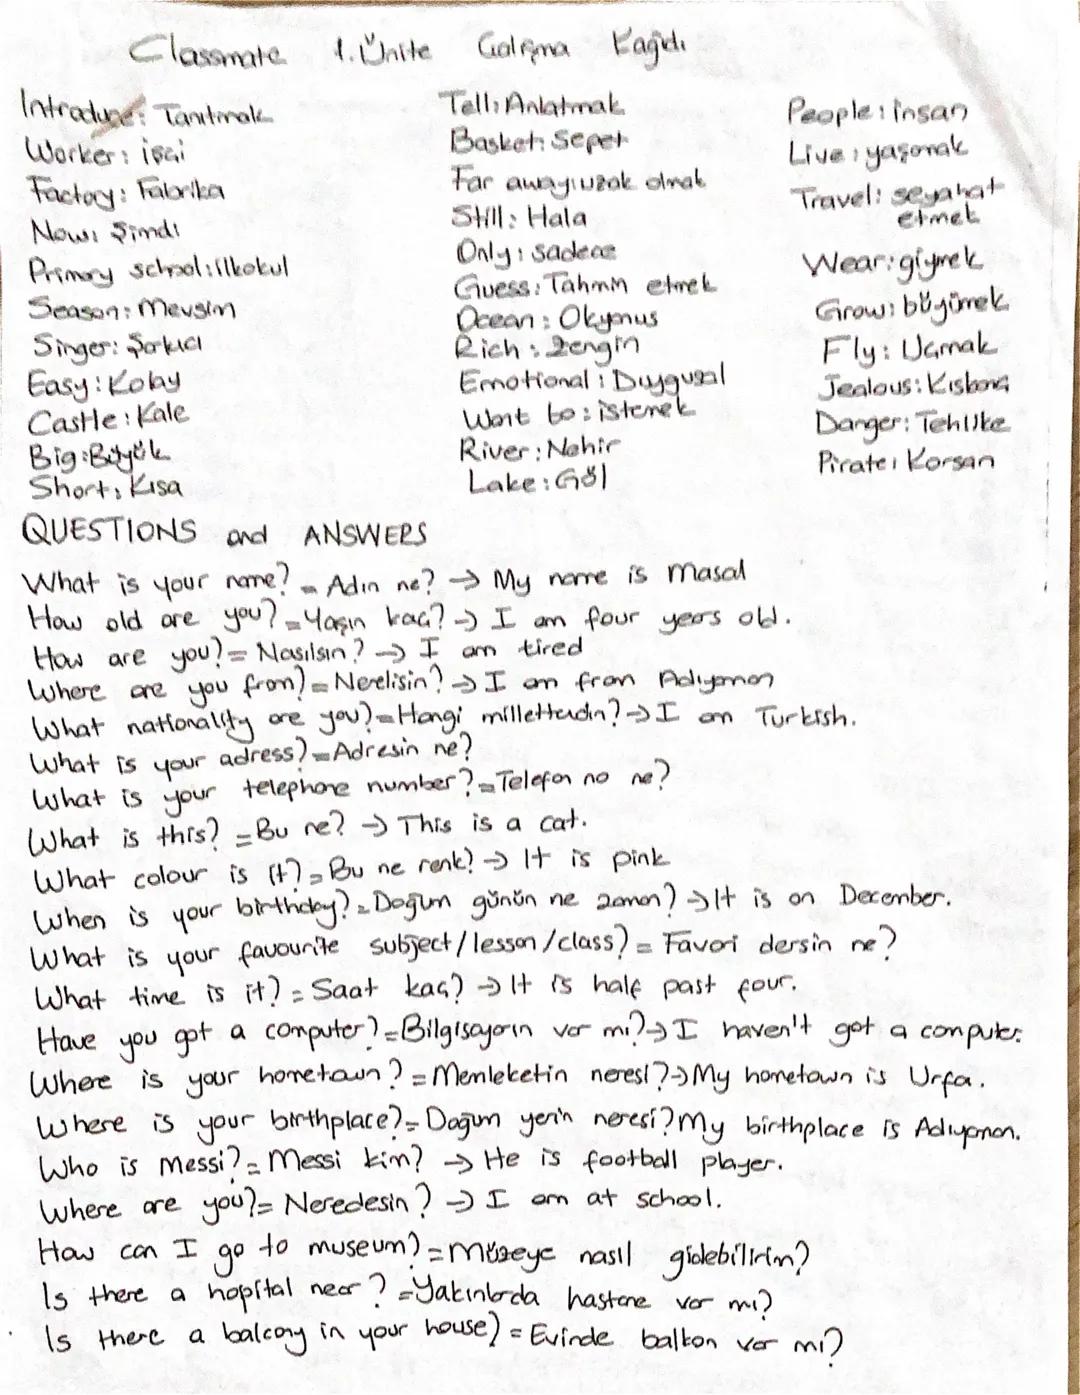 Classmate 1. Ünite Çalışma Kağıdı
Introduce: Tanıtmak
Worker: işçi
Factory: Fabrika
Now: Şimdi
Primary school: ilkokul
Season: Mevsim
Singer: Şarkıcı
Easy: Kolay
Castle: Kale
Big: Büyük
Short: Kısa
Tell: Anlatmak
Basket: Sepet
Far away: uzak olmak
Still: Hala
Only: sadece
Guess: Tahmin etmek
Ocean: Okyanus
Rich: Zengin
Emotional: Duygusal
Want to: istemek
River: Nehir
Lake: Göl
People: insan
Live: yaşamak
Travel: seyahat
etmek
Wear: giymek
Grow: büyümek
Fly: Uçmak
Jealous: Kıskanç
Danger: Tehlike
Pirate: Korsan
QUESTIONS and ANSWERS
What is your name? = Adın ne? → My name is Masal
How old are you? = Yaşın kaç? → I am four years old.
How are you? = Nasılsın? → I am tired
Where are you from? = Nerelisin? → I am from Adıyaman
What nationality are you? = Hangi millettendin? → I am Turkish.
What is your adress? = Adresin ne?
What is your telephone number? = Telefon no ne?
What is this? = Bu ne? → This is a cat.
What colour is it? = Bu ne renk? → It is pink
When is your birthday? = Doğum günün ne zaman? → It is on December.
What is your favourite subject/lesson/class? = Favori dersin ne?
What time is it? = Saat kaç? → It is half past four.
Have you got a computer? = Bilgisayarın var mı? → I haven't got a computer.
Where is your hometown? = Memleketin neresi? → My hometown is Urfa.
Where is your birthplace? = Doğum yerin neresi? My birthplace is Adıyaman.
Who is Messi? = Messi kim? → He is football player.
Where are you? = Neredesin? → I am at school.
How can I go to museum? = Müzeye nasıl gidebilirim?
Is there a hopital near? = Yakınlarda hastane var mı?
Is there a balcony in your house? = Evinde balkon var mı?